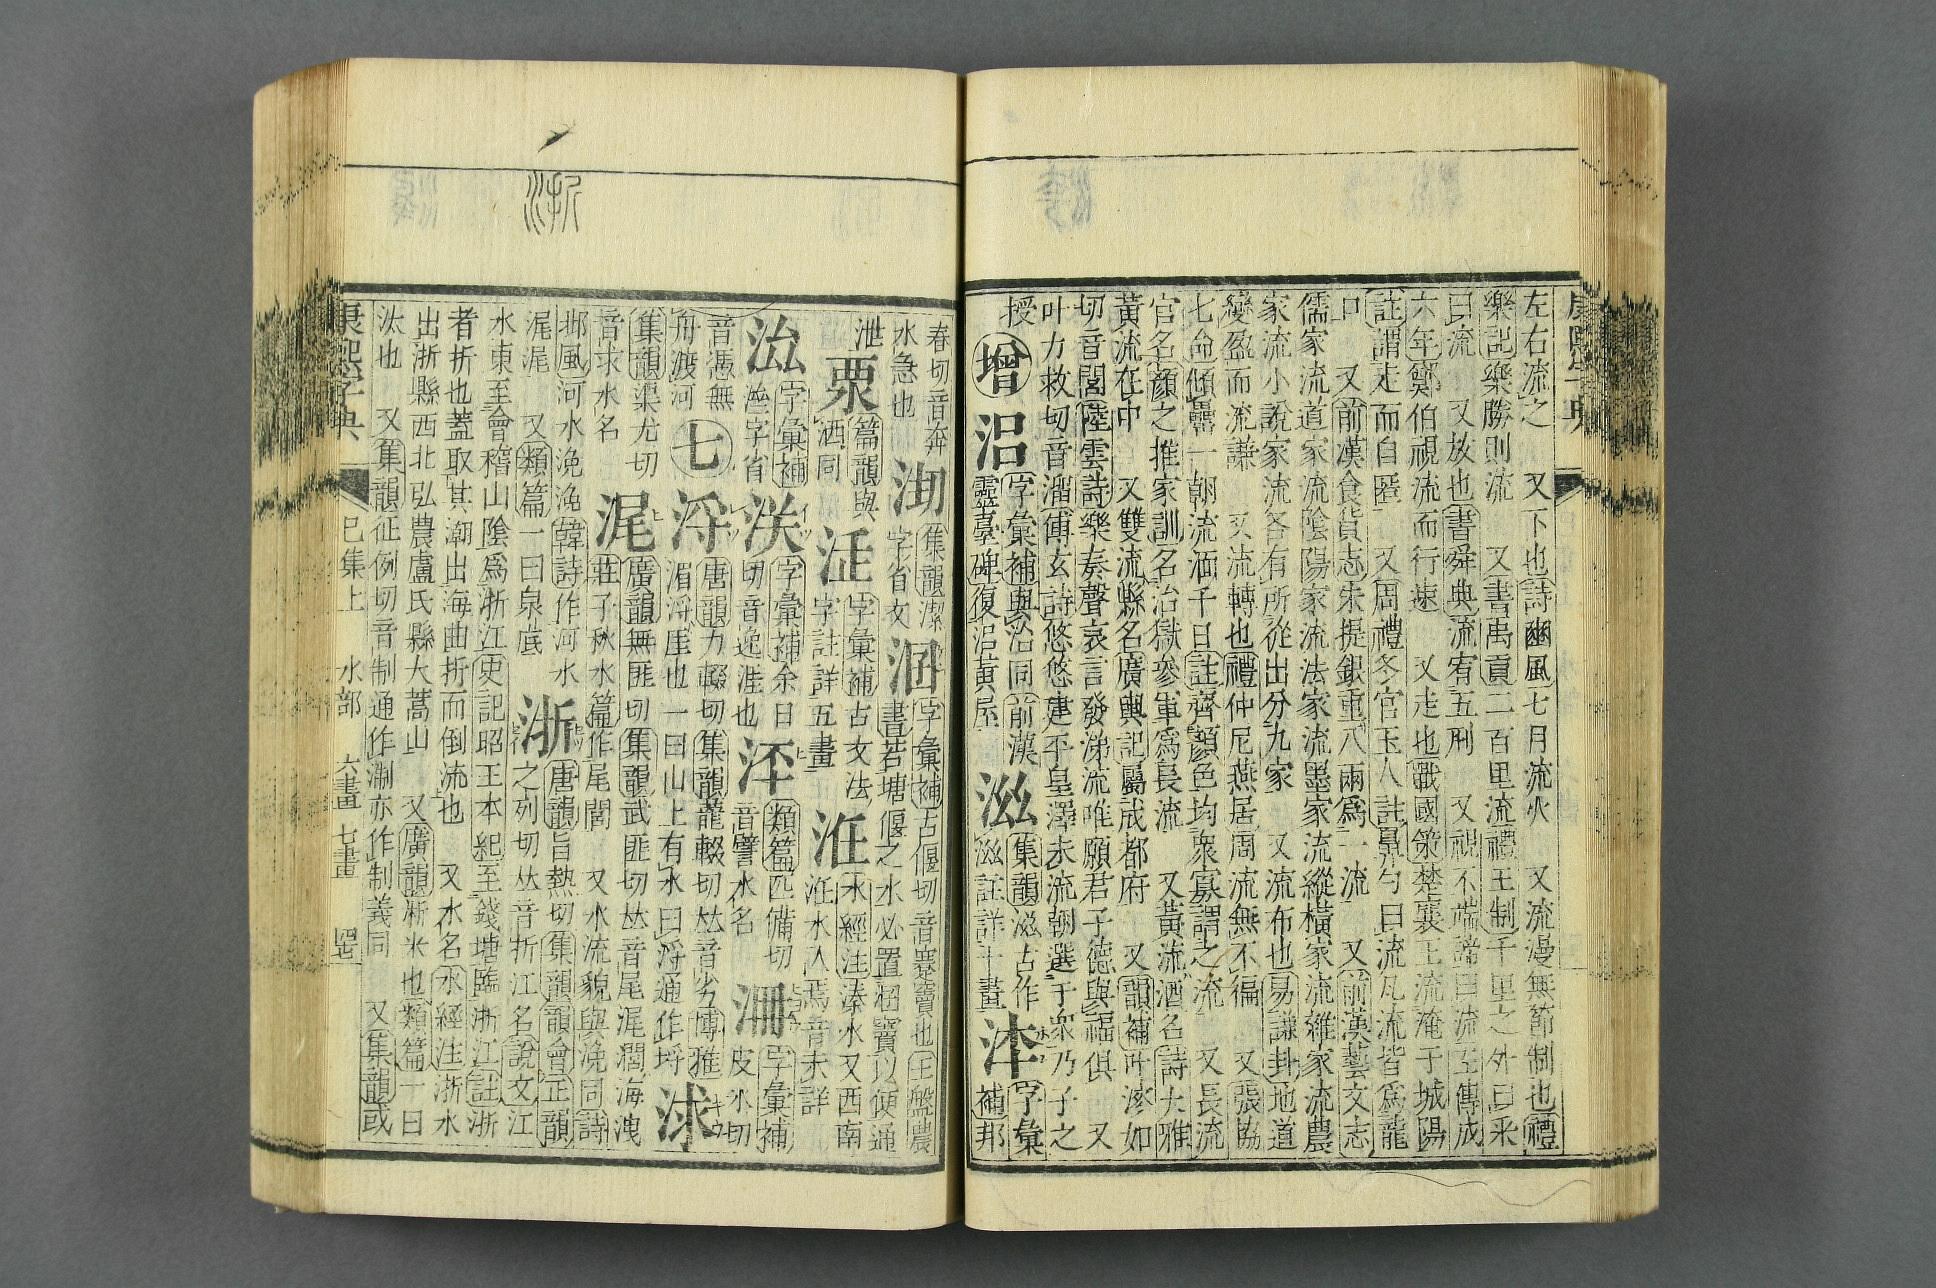 左右流之　又下也詩豳風七月流火　又流漫無節制也禮
樂記樂勝則流　又書禹貢二百里流禮王制千里之外曰采
曰流　又放也書舜典流宥五刑　又視不端諦曰流左傳成
六年鄭伯視流而行速　又走也戰國策楚襄王流淹于城陽
註謂走而自匿　又周禮冬官玉人註鼻勺曰流凡流皆爲龍
口　又前漢食貨志朱提銀重八兩爲一流　又前漢藝文志
儒家流道家流陰陽家流法家流墨家流縱橫家流雜家流農
家流小說家流各有所從出分九家　又流布也易謙卦地道
變盈而流謙　又流轉也禮仲尼燕居周流無不徧　又張協
七命傾罍一朝流湎千日註齊顏色均衆寡謂之流　又長流
官名顏之推家訓名治獄參軍爲長流　又黃流酒名詩大雅
黃流在中　又雙流縣名廣輿記屬成都府　又韻補叶滲如
切音閭陸雲詩樂奏聲哀言發涕流唯願君子德與福俱　又
叶力救切音溜傅玄詩悠悠建平皇澤未流朝選于衆乃子之
授
增
㳂字彙補與沿同前漢
靈臺碑復㳂黃屋
滋集韻滋古作
滋註詳十畫
字彙
補邦
春切音奔
水急也
集韻潔
字省文
字彙補古偃切音蹇竇也王盤農
書若塘偃之水必置㳫竇以便通
泄
篇韻與
洒同
字彙補古文法
字註詳五畫
水經注溱水又西南
汪水入焉音未詳
字彙補
溼字省
字彙補余日
切音逸淮也
類篇匹備切
音譬水名
字彙補
皮冰切
音憑無
舟渡河
七
浖唐韻力輟切集韻龍輟切𠀤音劣博雅
湄浖厓也一曰山上有水曰浖通作埒
浗
集韻渠尤切
音求水名
浘廣韻無匪切集韻武匪切𠀤音尾浘濶海洩
莊子秋水篇作尾閭　又水流貌與浼同詩
邶風河水浼浼韓詩作河水
浘浘　又類篇一曰泉底
浙唐韻旨熱切集韻韻會正韻
之列切𠀤音折江名說文江
水東至會稽山陰爲浙江史記昭王本紀至錢塘臨浙江註浙
者折也蓋取其潮出海曲折而倒流也　又水名水經注浙水
出浙縣西北弘農盧氏縣大蒿山　又廣韻淅米也類篇一曰
汰也　又集韻征例切音制通作淛亦作制義同　又集韻或
康熙字典
巳集上　水部　六畫　七畫
浙